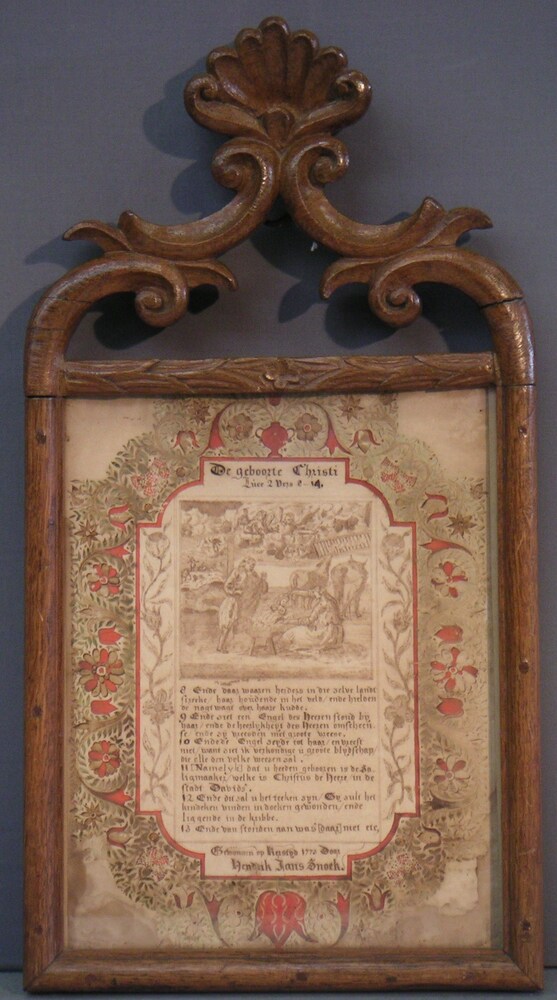 De geboorte Christi
Luce 2 Vers 8-14.
8 Ende daar waaren herders in die selve landt
streke, haar houdende in het veld, ende hielden
de nagt wagt over haare kudde.
9 Ende siet een Engel des Heeren stond by
haar, ende de heerlykheyt des Heeren omscheen
se, ende sy vreesden met groote vreese.
10 Ende de Engel seyde tot haar, en vreest
niet, want siet ik verkondige u groote blydschap,
die alle den volke weesen sal.
11 Namelyk dat u heeden gebooren is de Sa-
ligmaaker, welke is Christus de Heere, in de
stadt Davids.
12 Ende dit sal u het teeken syn, Gy sult het
kindeken vinden in doeken gewonden, ende
liggende in de kribbe.
13 Ende van stonden aan was daar met etc.
Hendrik Jans Snoek.